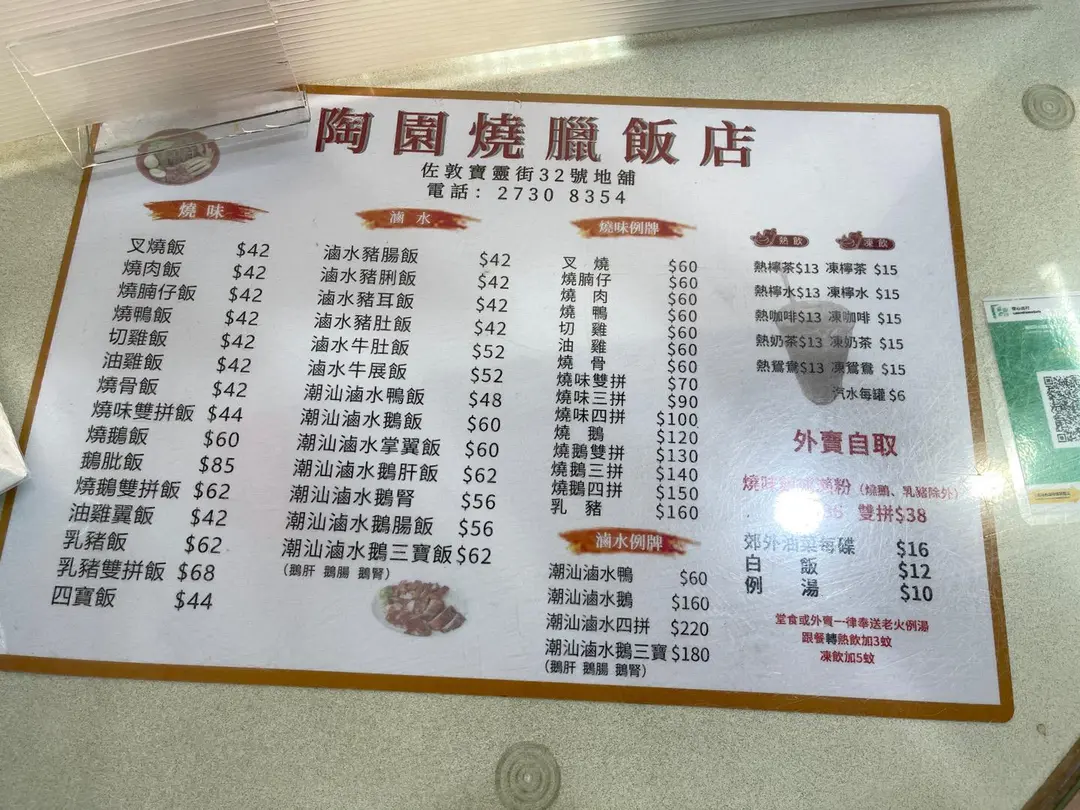 陶園燒臘飯店
佐敦寶靈街32號地舖
電話: 2730 8354
燒味
叉燒飯 $42
燒肉飯 $42
燒腩仔飯 $42
燒鴨飯 $42
切雞飯 $42
油雞飯 $42
燒骨飯 $42
燒味雙拼飯 $44
燒鵝飯 $60
鵝肶飯 $85
燒鵝雙拼飯 $62
油雞翼飯 $42
乳豬飯 $62
乳豬雙拼飯 $68
四寶飯 $44
滷水
滷水豬腸飯 $42
滷水豬脷飯 $42
滷水豬耳飯 $42
滷水豬肚飯 $42
滷水牛肚飯 $52
滷水牛展飯 $52
潮汕滷水鴨飯 $48
潮汕滷水鵝飯 $60
潮汕滷水掌翼飯 $60
潮汕滷水鵝肝飯 $62
潮汕滷水鵝腎 $56
潮汕滷水鵝腸飯 $56
潮汕滷水鵝三寶飯 $62
(鵝肝 鵝腸 鵝腎)
燒味例牌
叉燒 $60
燒腩仔 $60
燒肉 $60
燒鴨 $60
切雞 $60
油雞 $60
燒骨 $60
燒味雙拼 $70
燒味三拼 $90
燒味四拼 $100
燒鵝 $120
燒鵝雙拼 $130
燒鵝三拼 $140
燒鵝四拼 $150
乳豬 $160
滷水例牌
潮汕滷水鴨 $60
潮汕滷水鵝 $160
潮汕滷水四拼 $220
潮汕滷水鵝三寶 $180
(鵝肝 鵝腸 鵝腎)
熱飲 凍飲
熱檸茶$13 凍檸茶 $15
熱檸水$13 凍檸水 $15
熱咖啡$13 凍咖啡 $15
熱奶茶$13 凍奶茶 $15
熱鴛鴦$13 凍鴛鴦 $15
汽水每罐 $6
外賣自取
燒味 粉 (燒鵝、乳豬除外)
雙拼$38
郊外油菜每碟 $16
白飯 $12
例湯 $10
堂食或外賣一律奉送老火例湯
跟餐轉熱飲加3蚊
凍飲加5蚊